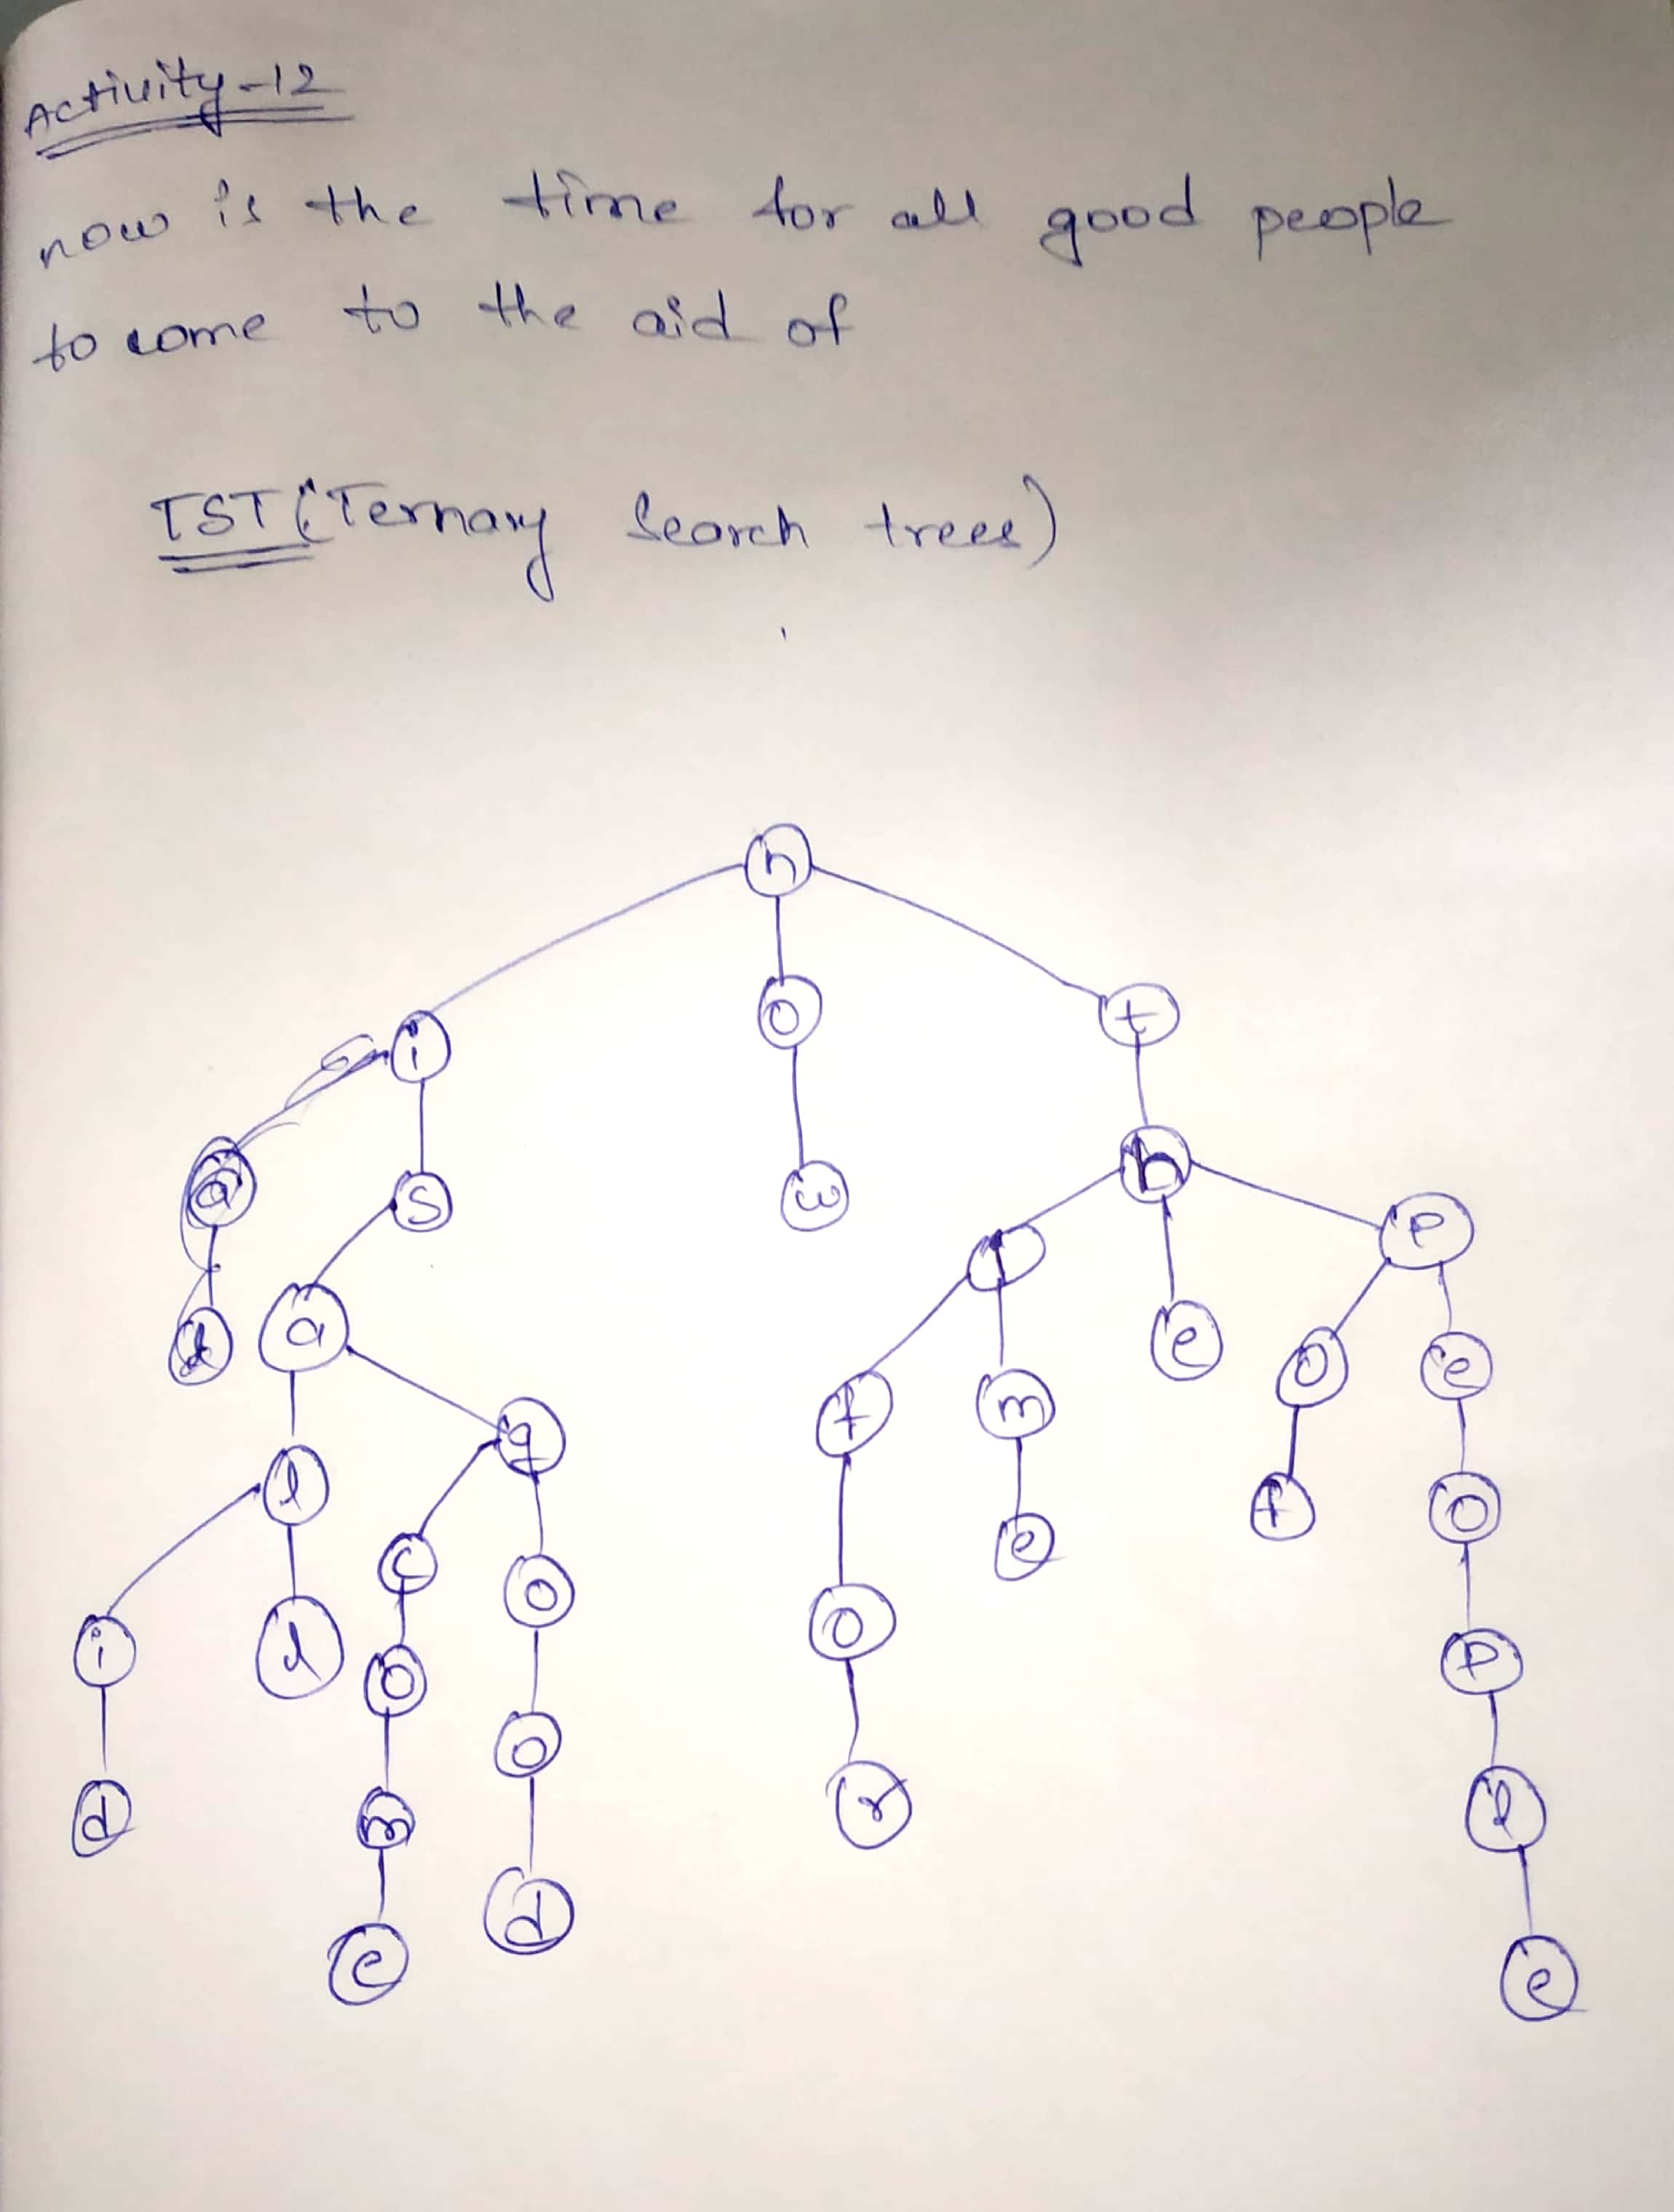 Activity-12
now is the time for all good people
to come to the aid of
TST (Ternary Search trees)
n
i o t
a s w h p
i e o e
d a f m f o
l g e p
i l c o o l
d o o r e
m d
e